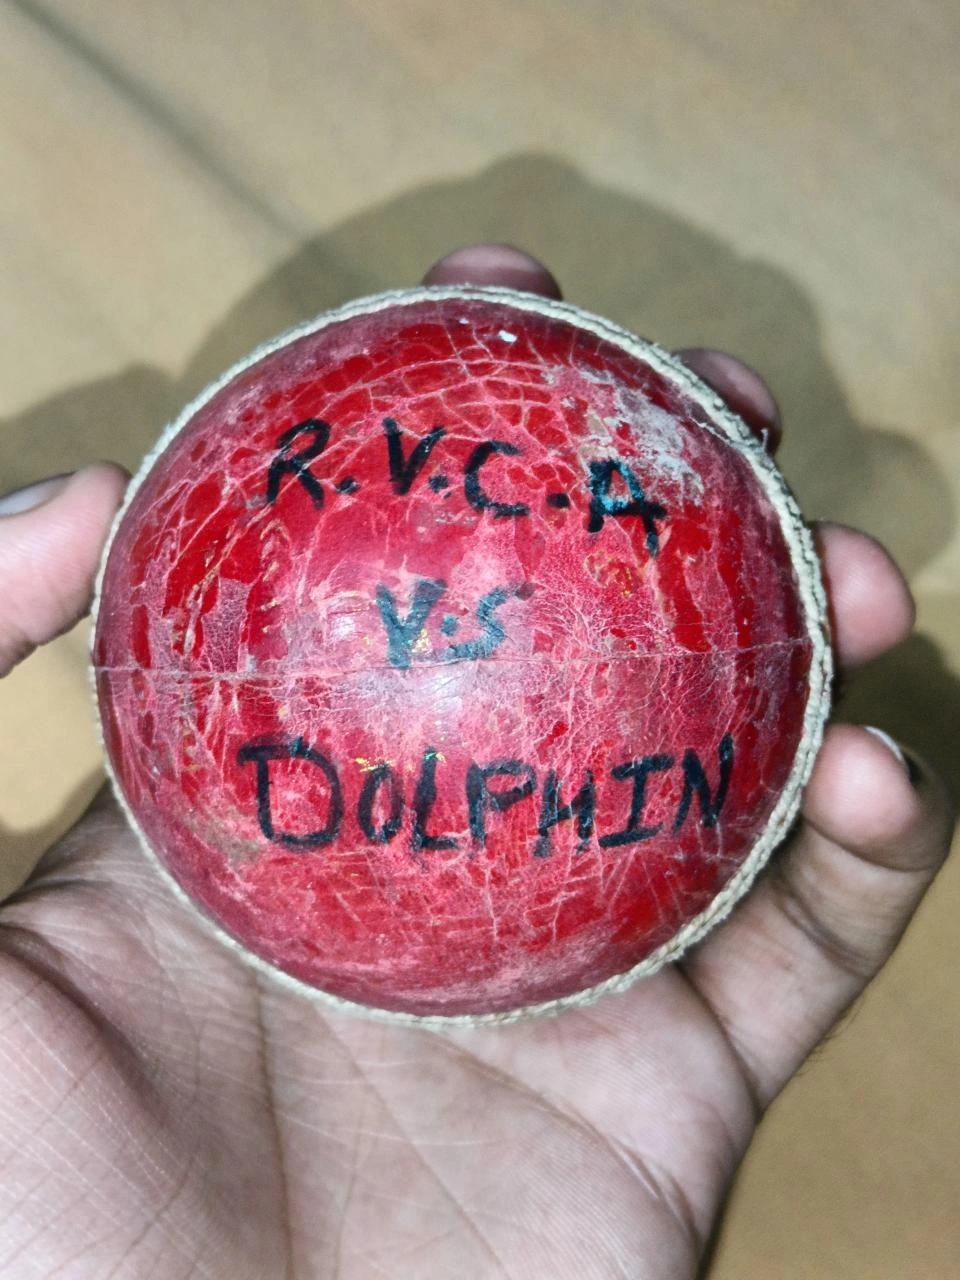 R.V.C.A
V.S
DOLPHIN